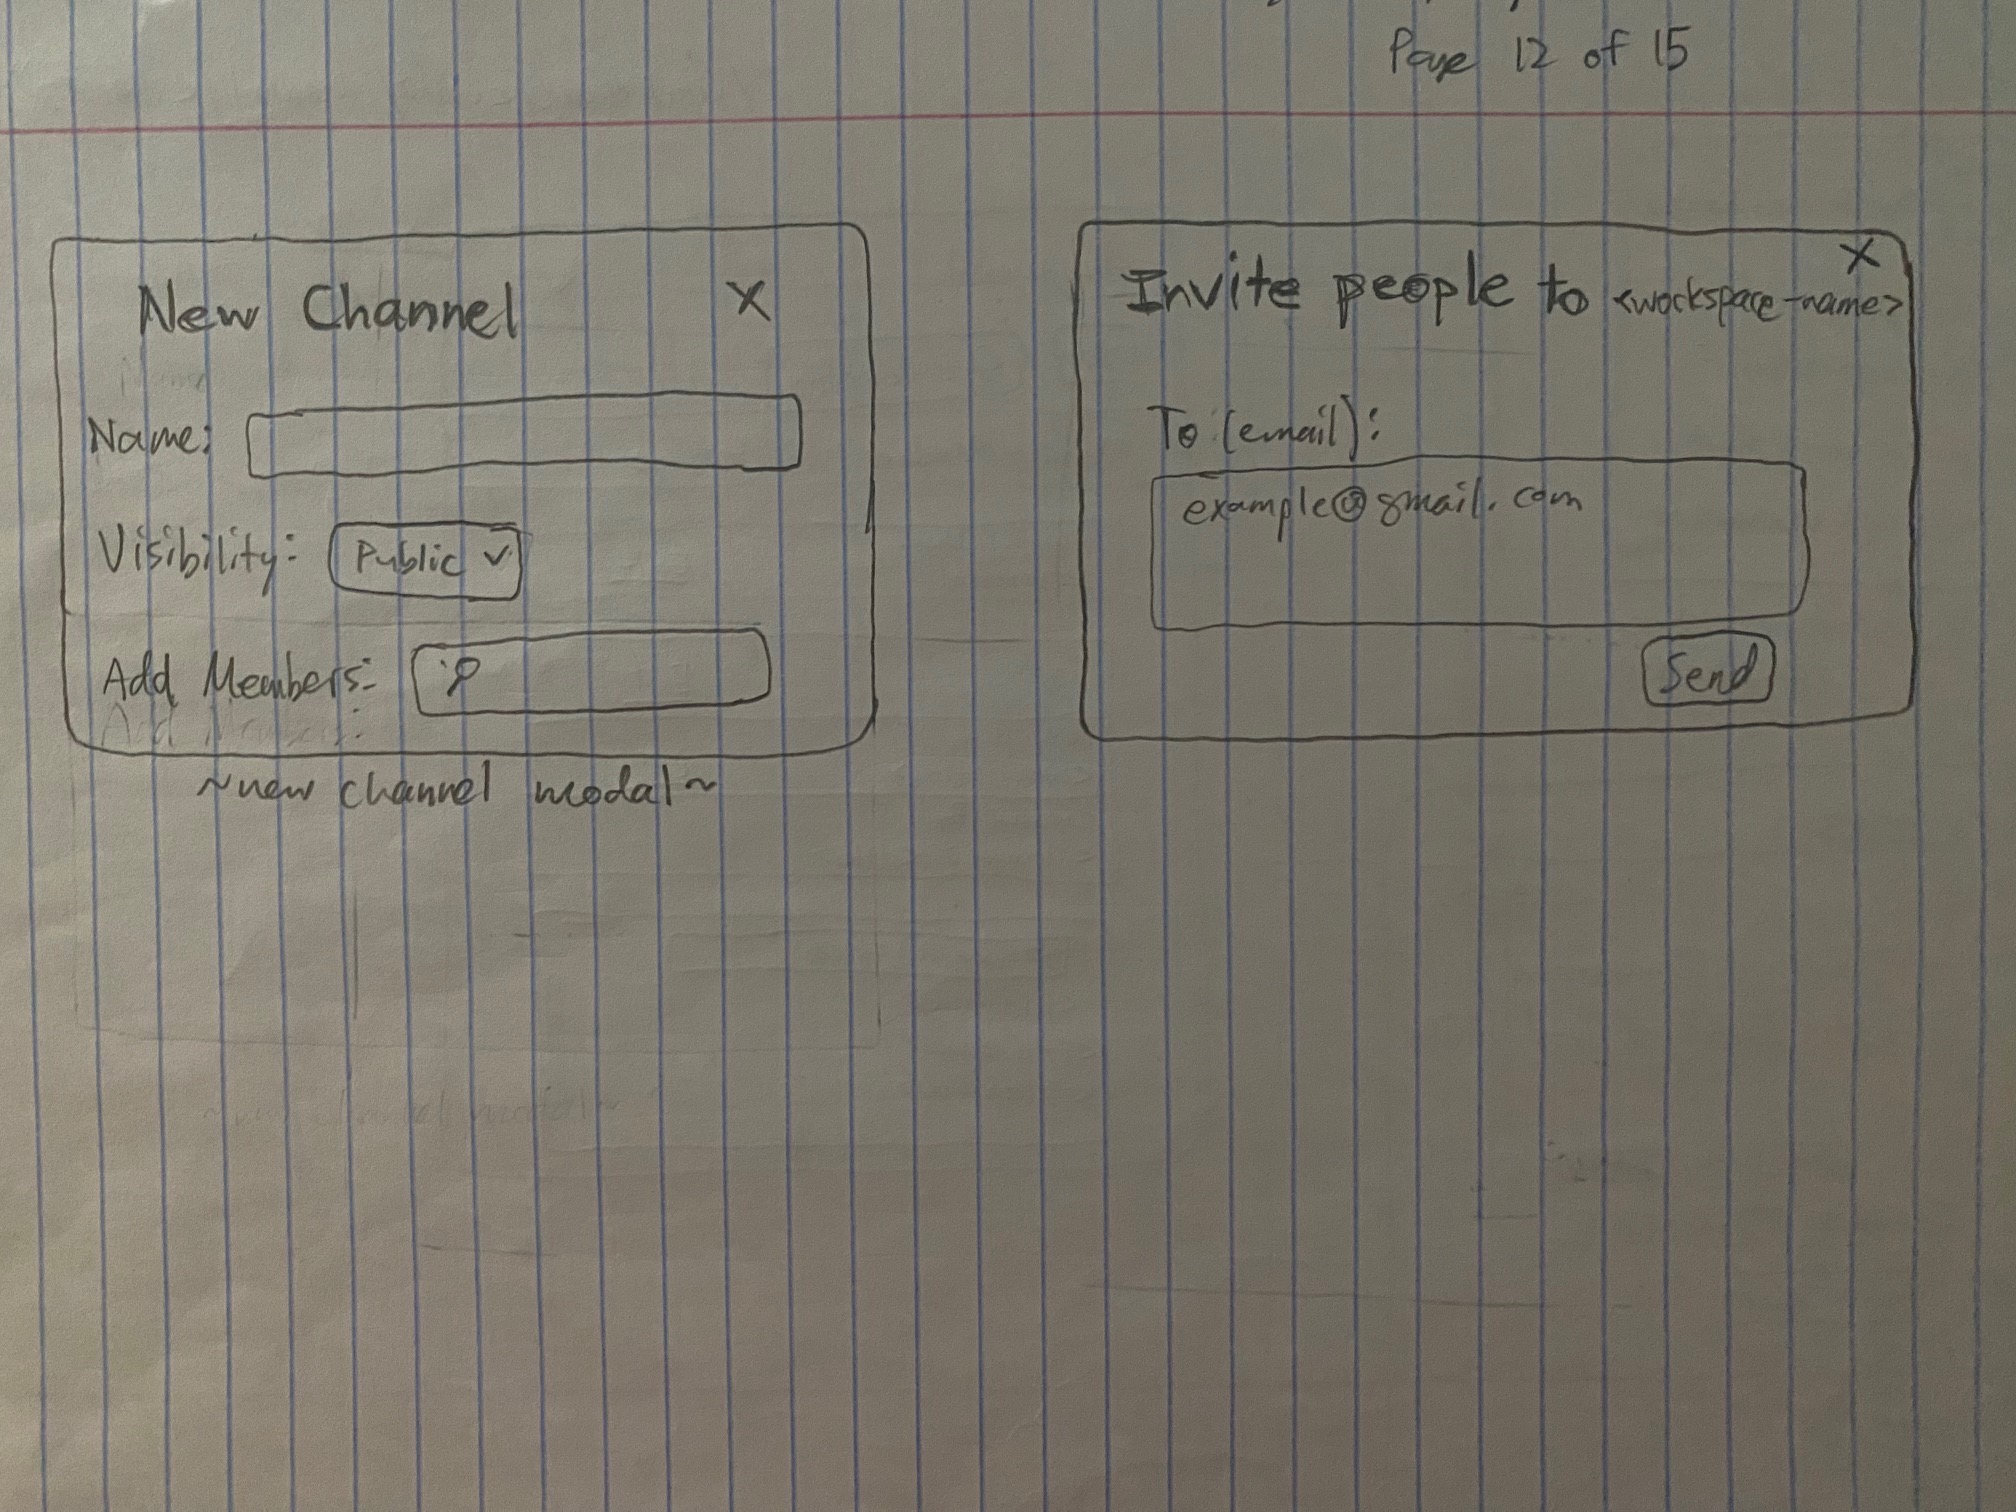 Page 12 of 15
New Channel X
Name:
Visibility: Public
Add Members:
~new channel modal~
Invite people to <workspace-name> X
To (email):
example@gmail.com
Send